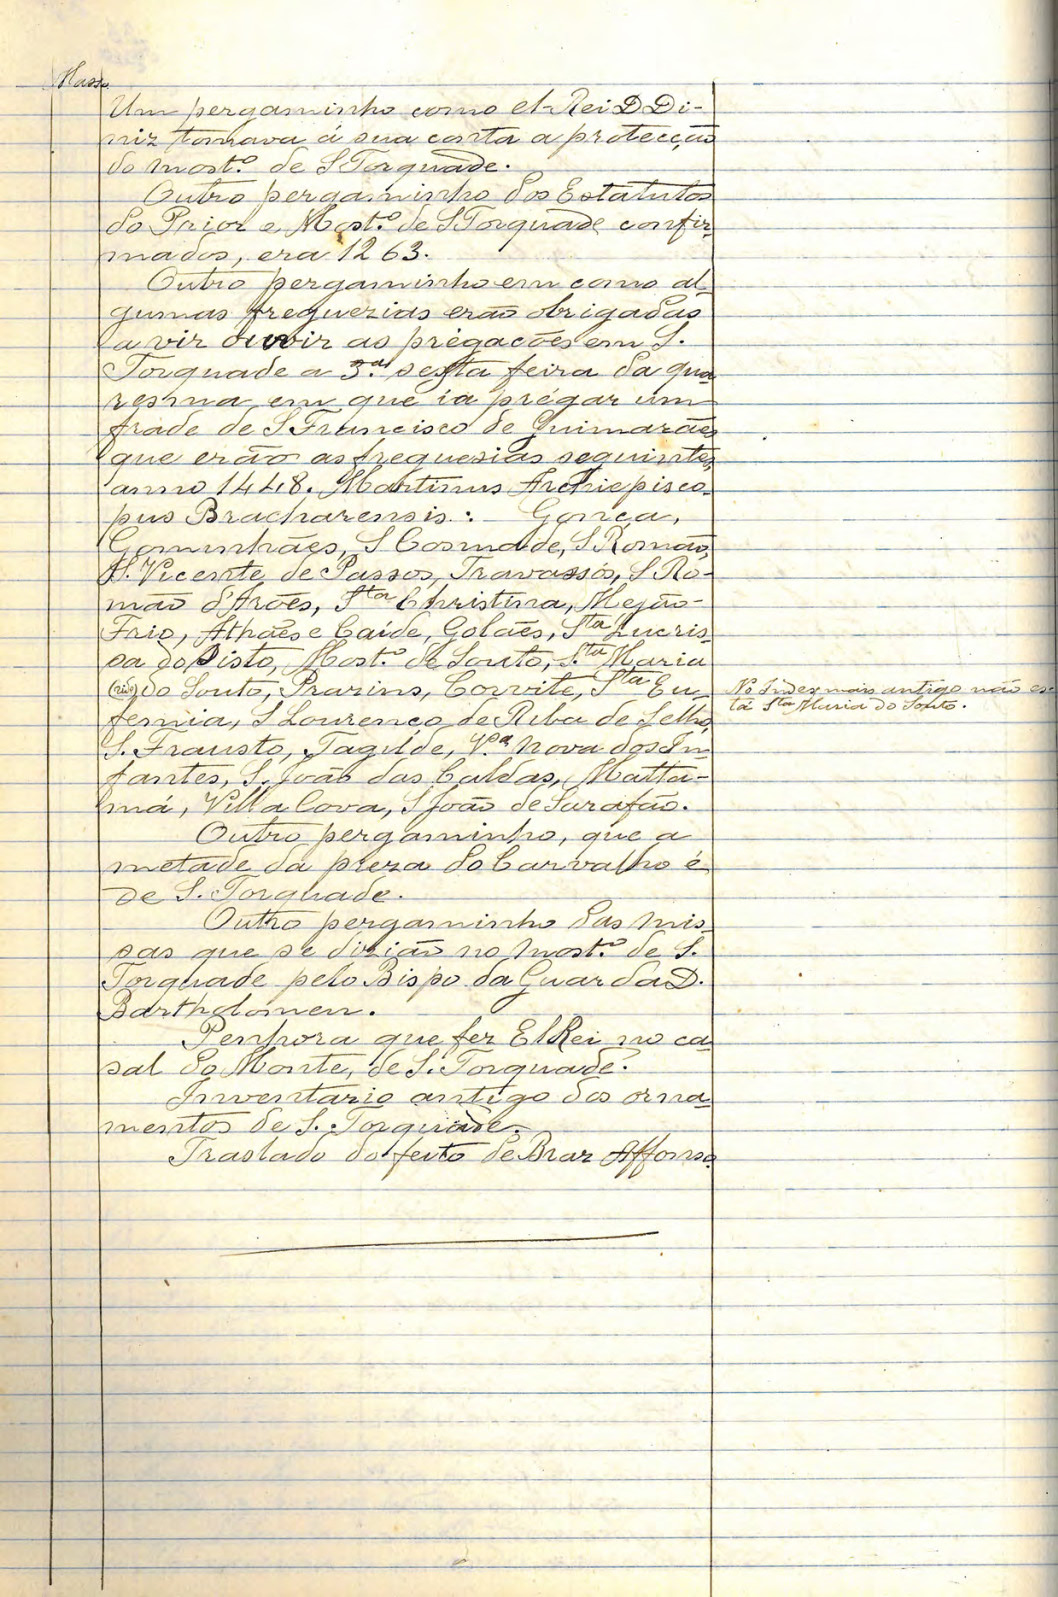 Masso
Um pergaminho como el-Rei D Di-
niz tomava á sua conta a protecção
do Most.º de S Torquade.
Outro pergaminho dos Estatutos
do Prior e Most.º de S Torquade confir-
mados, era 1263.
Outro pergaminho em como al-
gumas freguezias erão obrigadas
a vir ouvir as prégações em S.
Torquade a 3.ª sexta feira da qua-
resma em que ia prégar um
frade de S Francisco de Guimarães
que erão as freguesias seguintes,
anno 1448. Martinus Archiepisco-
pus Bracharensis: Gonça,
Gominhães, S Cosmade, S Romão,
S. Vicente de Passos, Travassós, S Ro-
mão d'Arões, Sta Christina, Mejão-
Frio, Athães e Caíde, Golães, Sta Lucris-
sa do Disto, Most.º de Souto, S.ta Maria
do Souto, Prazins, Corvite, Sta Eu-
femia, S Lourenço de Riba de Selho,
S. Frausto, Tagilde, V.ª Nova dos In-
fantes, S. João das Caldas, Matta-
má, Villa Cova, S João de Sarafão.
No Index mais antigo não es-
tá Sta Maria do Souto.
Outro pergaminho, que a
metade da preza do Carvalho é
de S. Torquade.
Outro pergaminho das mis-
sas que se dizião no Most.º de S.
Torquade pelo Bispo da Guarda D.
Bartholomeu.
Penhora que fez El Rei no ca-
sal do Monte, de S. Torquade.
Inventario antigo dos orna-
mentos de S. Torquade.
Traslado do feito de Braz Affonso